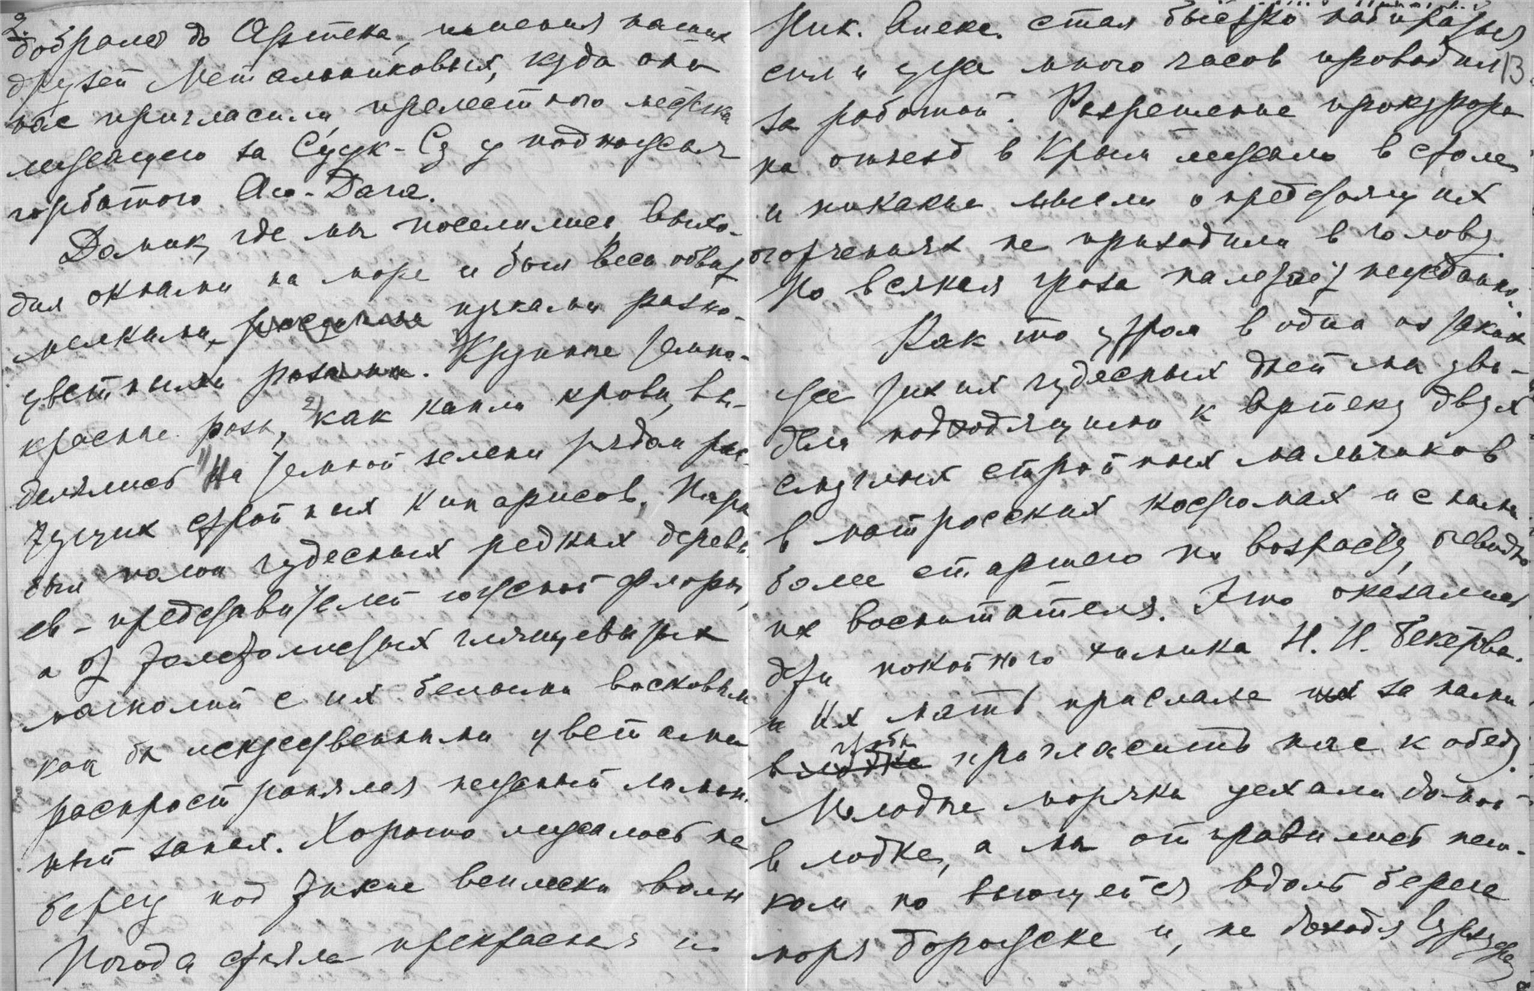 2.
добрались до Артека, имения наших
друзей Метальниковых, куда они
нас пригласили, прелестного местечка
лежащего за Суук-Су у подножья
горбатого Аю-Дага.
Домик, где мы поселились, выхо-
дил окнами на море и был весь обвит
мелкими, вьющимися пучками разно-
цветными розами. Крупные темно-
красные розы, как капли крови, вы-
делялись на темной зелени рядом рас-
тущих стройных кипарисов. Парк
был полон чудесных редких деревь-
ев - представителей южной флоры,
а от толстолистых глянцевитых
магнолий с их белыми восковыми
как бы искусственными цветами
распространялся нежный лимон-
ный запах. Хорошо лежалось на
берегу под тихие всплески волн
Погода стояла прекрасная и
Ник. Алекс. стал быстро набираться
сил и уже много часов проводил
13
за работой. Разрешение прокурора
на отъезд в Крым лежало в столе
и никакие мысли о предстоящих
огорчениях не приходили в голову.
Но всякая гроза налетает неожиданно.
Как то утром в один из таких
же тихих чудесных дней мы уви-
дели подходящими к Артеку двух
смуглых стройных мальчиков
в матросских костюмах и с ними
более старшего по возрасту, очевидно
их воспитателя. Это оказались
дети покойного химика Н. Н. Бекетова.
и их мать прислала за нами
чтобы
в лодке пригласить нас к обеду.
Молодые моряки уехали домой
в лодке, а мы отправились пеш-
ком по вьющейся вдоль берега
моря дорожке и, не доходя Гурзуфа,